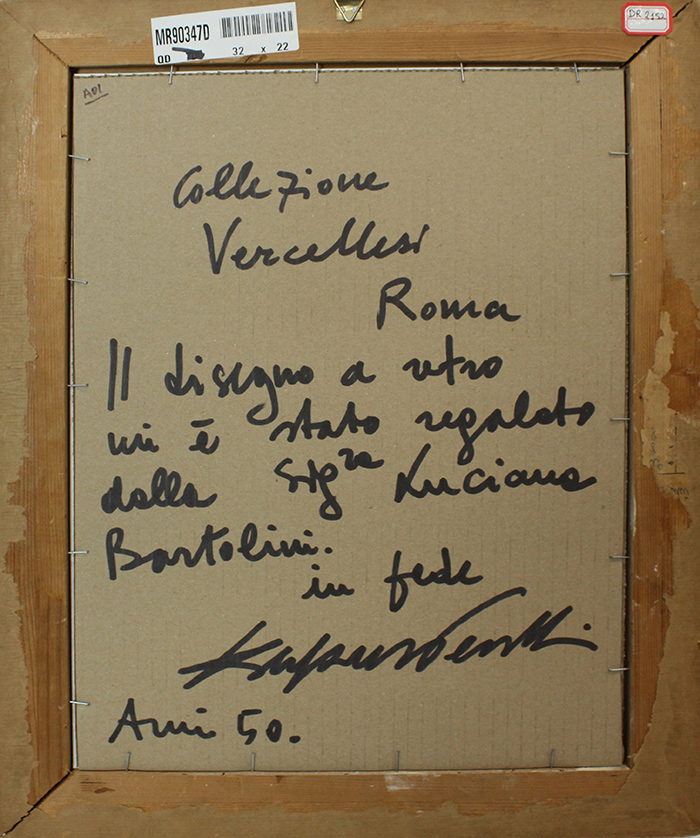 MR90347D
QD
32 x 22
DR 2152
AOL
Collezione
Vercellesi
Roma
Il disegno a retro
mi è stato regalato
dalla Sig.ra Luciana
Bartolini.
in fede
Anni 50.